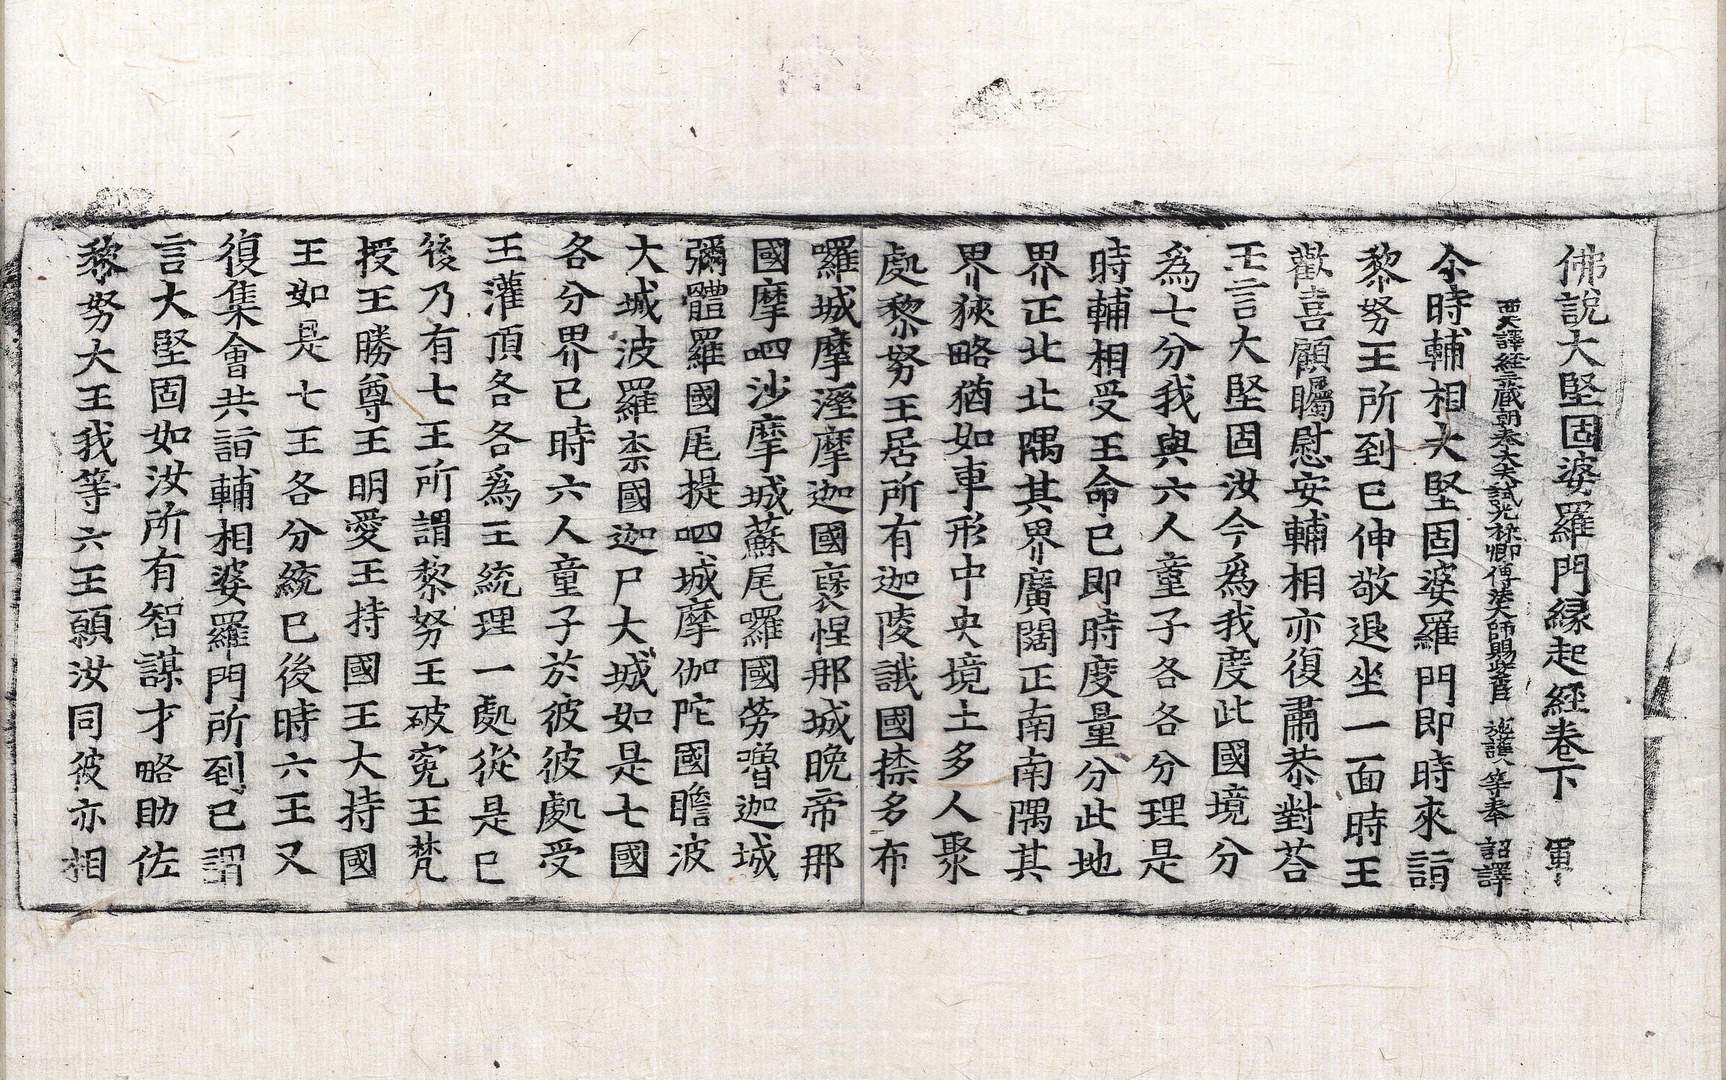 佛說大堅固婆羅門緣起經卷下 軍
西天譯經三藏朝奉大夫試光祿卿傳法大師賜紫臣 施護 等奉 詔譯
尒時輔相大堅固婆羅門即時來詣
黎努王所到已伸敬退坐一面時王
歡喜顧矚慰安輔相亦復肅恭對荅
王言大堅固汝今爲我度此國境分
爲七分我與六人童子各各分理是
時輔相受王命已即時度量分此地
界正北北隅其界廣闊正南南隅其
界狹略猶如車形中央境土多人聚
處黎努王居所有迦陵誐國捺多布
囉城摩溼摩迦國裒怛那城晚帝那
國摩呬沙摩城蘇尾囉國勞嚕迦城
彌體羅國尾提呬城摩伽陀國瞻波
大城波羅柰國迦尸大城如是七國
各分界已時六人童子於彼彼處受
王灌頂各各爲王統理一處從是已
後乃有七王所謂黎努王破寃王梵
授王勝尊王明愛王持國王大持國
王如是七王各分統已後時六王又
復集會共詣輔相婆羅門所到已謂
言大堅固如汝所有智謀才略助佐
黎努大王我等六王願汝同彼亦相